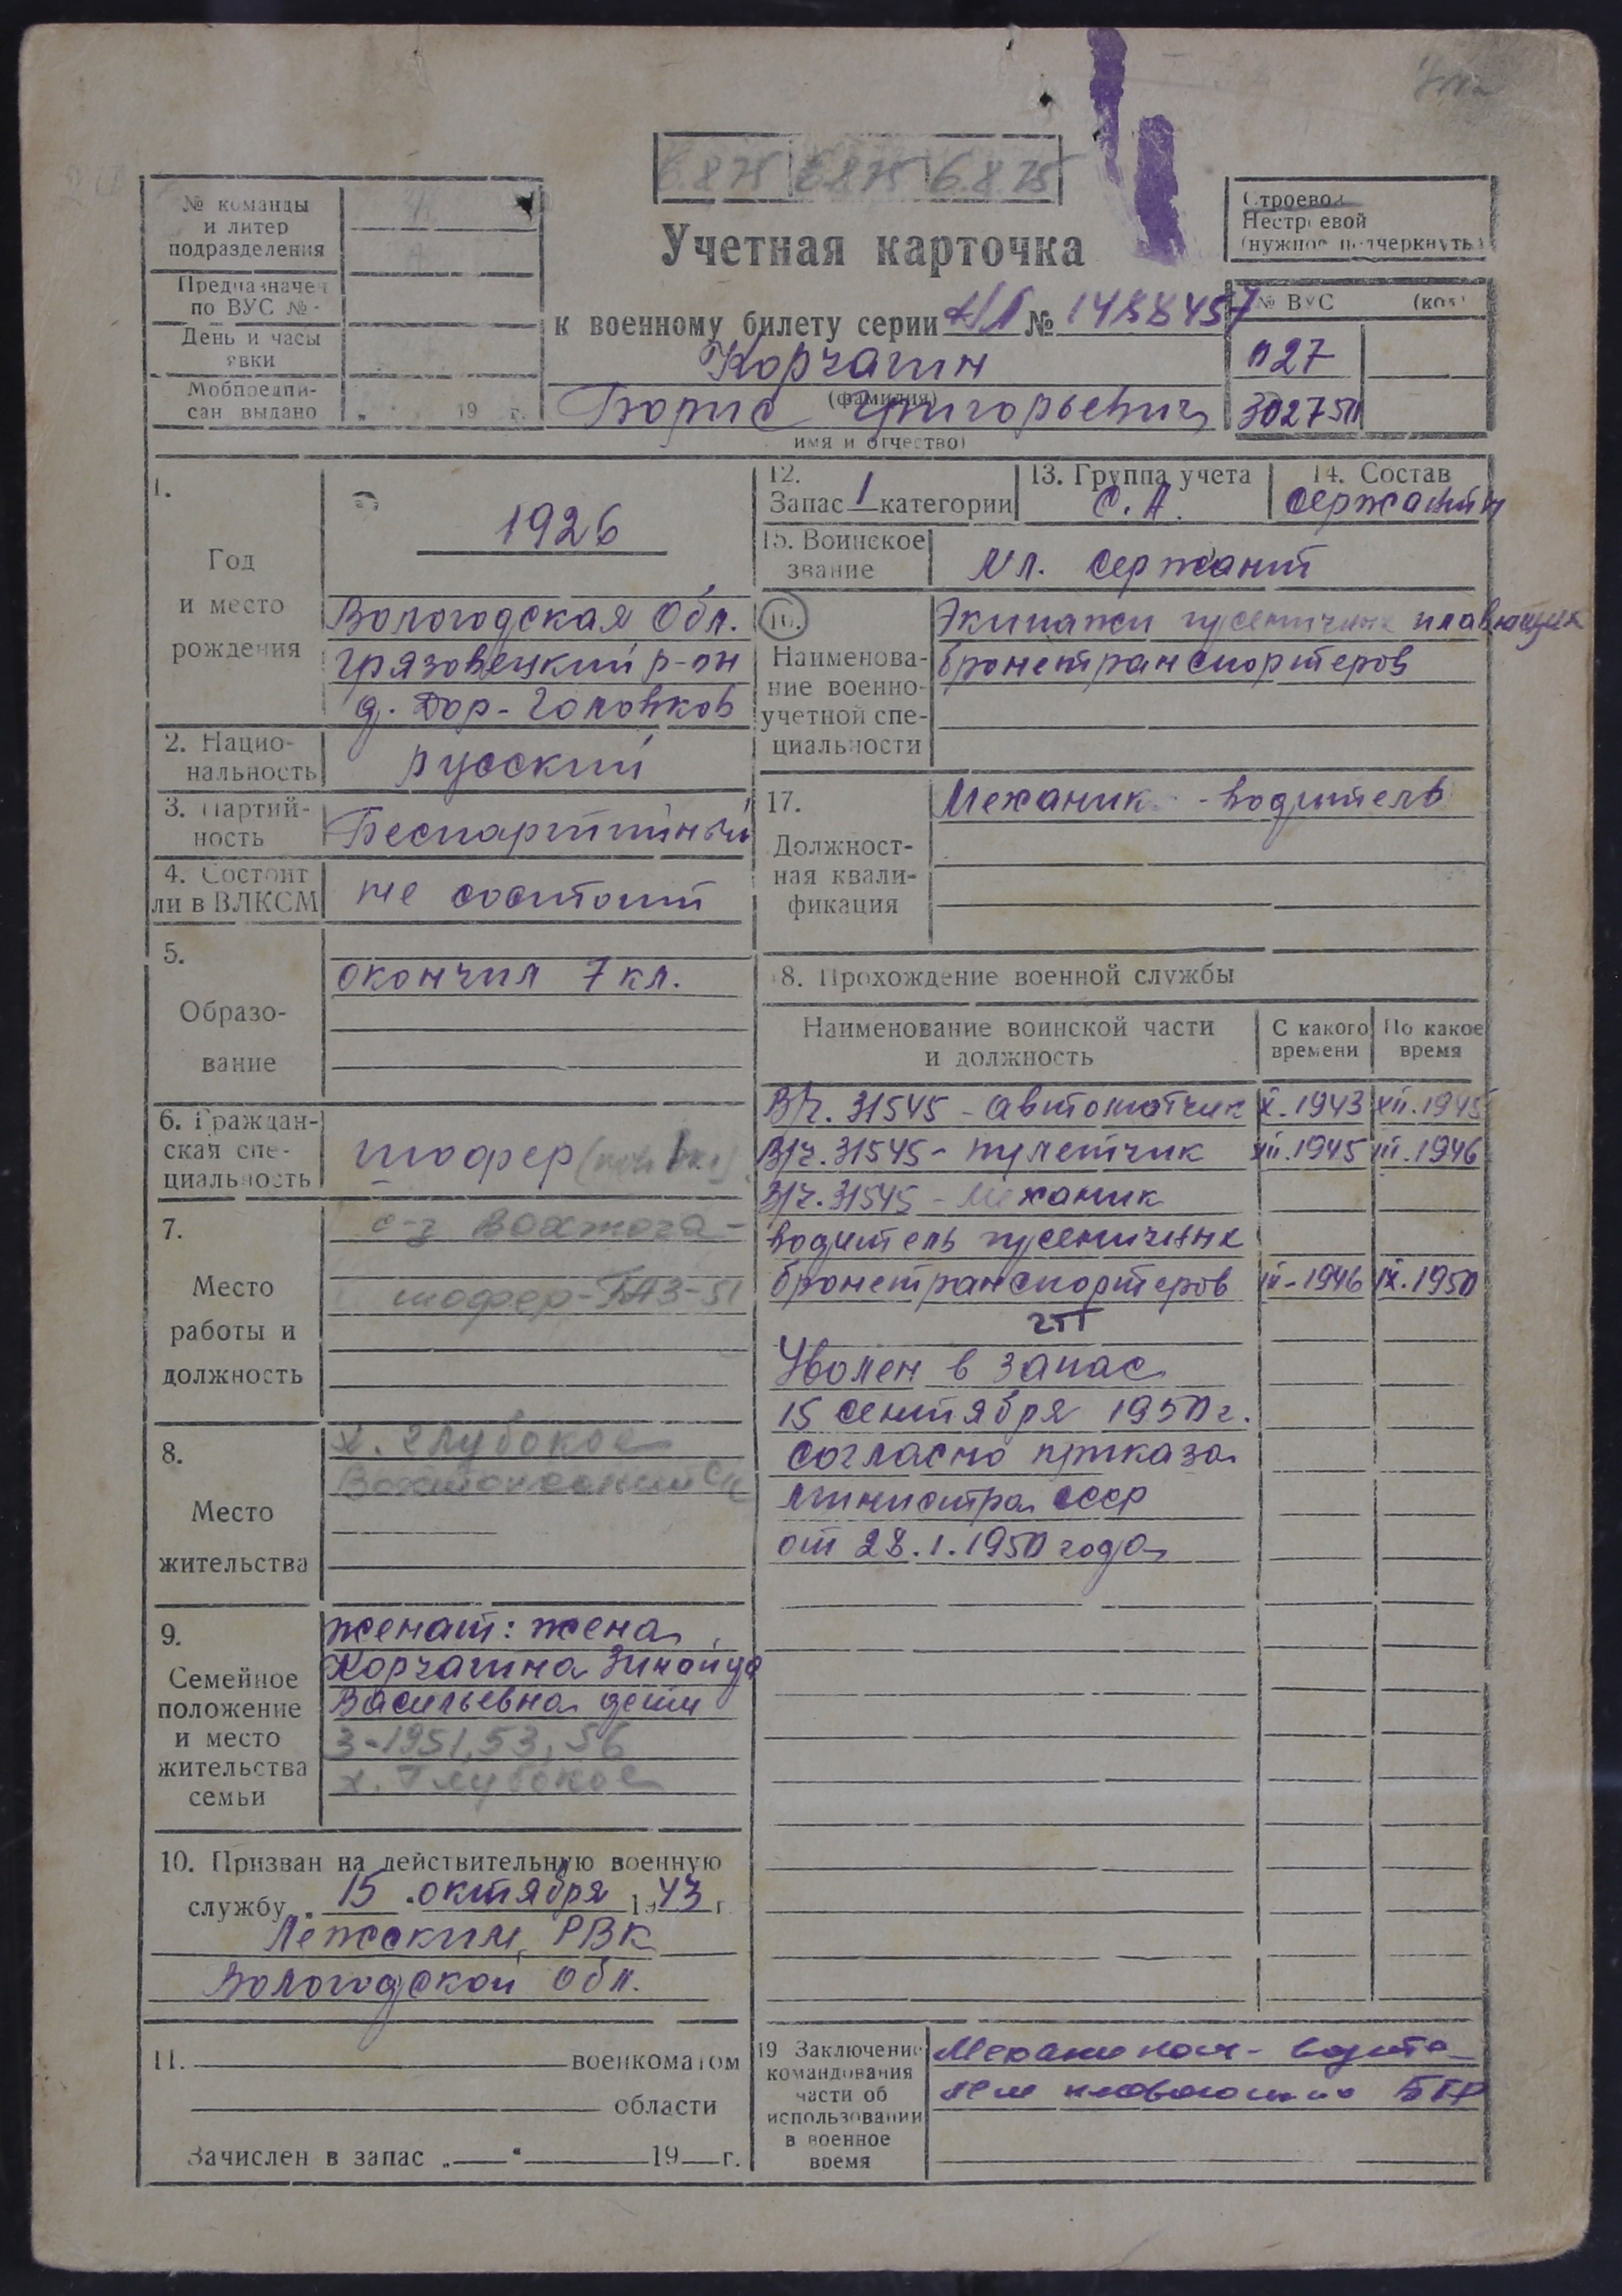 6.8.75 6.8.75 6.8.75
№ команды
и литер
подразделения
Предназначен
по ВУС №
День и часы
явки
Мобпредпи-
сан выдано „ 19 г.
Строевой
Нестроевой
(нужное подчеркнуть)
Учетная карточка
к военному билету серии № 1488457
Корчагин
(фамилия)
Борис Григорьевич
имя и отчество)
№ ВУС (код)
027
1.
Год
и место
рождения
1926
Вологодская Обл.
Грязовецкий р-он
д. Дор-Головков
2. Нацио-
нальность
русский
3. Партий-
ность
Беспартийный
4. Состоит
ли в ВЛКСМ
не состоит
5.
Образо-
вание
окончил 7 кл.
6. Граждан-
ская спе-
циальность
шофер
7.
Место
работы и
должность
с-з Вохтога-
шофер-ГАЗ-51
8.
Место
жительства
х. Глубокое
9.
Семейное
положение
и место
жительства
семьи
женат: жена
Корчагина Зинаида
Васильевна дети
3-1951, 53, 56
х. Глубокое
10. Призван на действительную военную
службу „ 15 . октября 1943 г.
Лежским РВК
Вологодской обл.
11. военкоматом
области
Зачислен в запас „ “ 19 г.
12.
Запас 1 категории
13. Группа учета
С.А.
14. Состав
сержантский
15. Воинское
звание
Мл. сержант
16.
Наименова-
ние военно-
учетной спе-
циальности
Экипажи гусеничных плавающих
бронетранспортеров
17.
Должност-
ная квали-
фикация
Механик - водитель
18. Прохождение военной службы
Наименование воинской части
и должность
С какого
времени
По какое
время
В/ч. 31545 - автоматчик X.1943 XII.1945
В/ч. 31545 - пулетчик XII.1945 III.1946
В/ч. 31545 - Механик
водитель гусеничных
бронетранспортеров III-1946 IX.1950
Уволен в запас
15 сентября 1950 г.
согласно приказа
министра СССР
от 28.1.1950 года
19 Заключение
командования
части об
использовании
в военное
время
Механиком - водите-
лем плавающих БТР